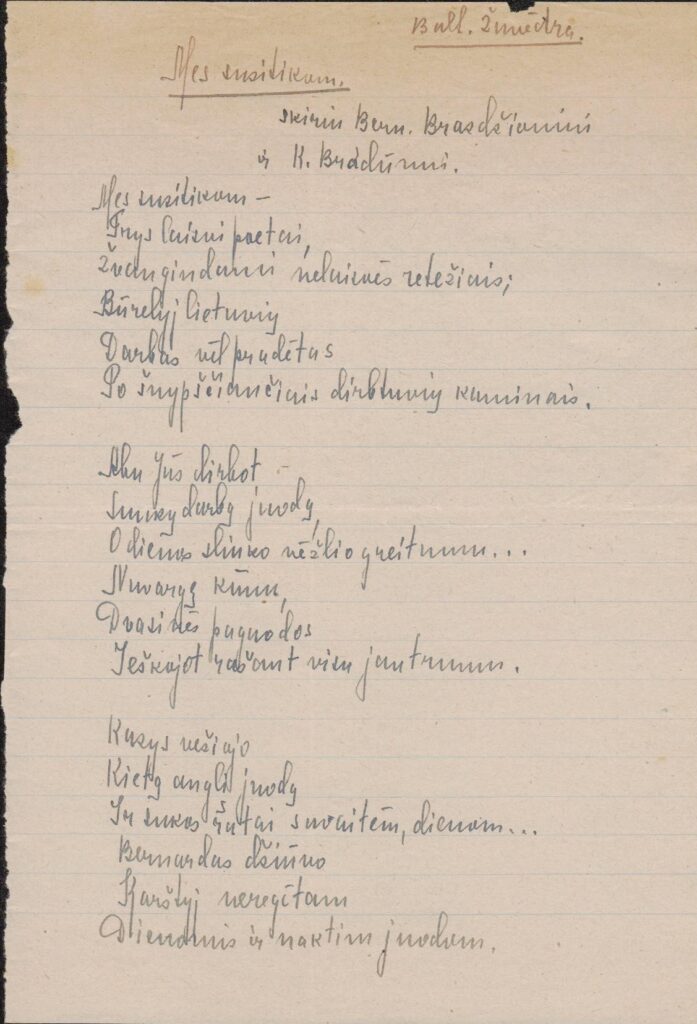 Balt. Žmėdra.
Mes susitikom.
skiriu Bern. Brazdžioniui
ir K. Bradūnui.
Mes susitikom —
Trys laisvi poetai,
Žvangindami nelaisvės retežiais;
Būrelyj lietuvių
Darbas vėl pradėtas
Po šnypščiančiais dirbtuvių kaminais.
Abu jūs dirbot —
Sunkų darbą juodą,
O dienos slinko vėžlio greitumu...
Nuvargę kūnu,
Dvasinės paguodos
Ieškojot rašant visu jautrumu.
Kazys vežiojo
Kietą anglį juodą
Ir sukos ratai savaitėm, dienom...
Bernardas džiūvo
Karštyj neregėtam
Dienomis ir naktim juodom.